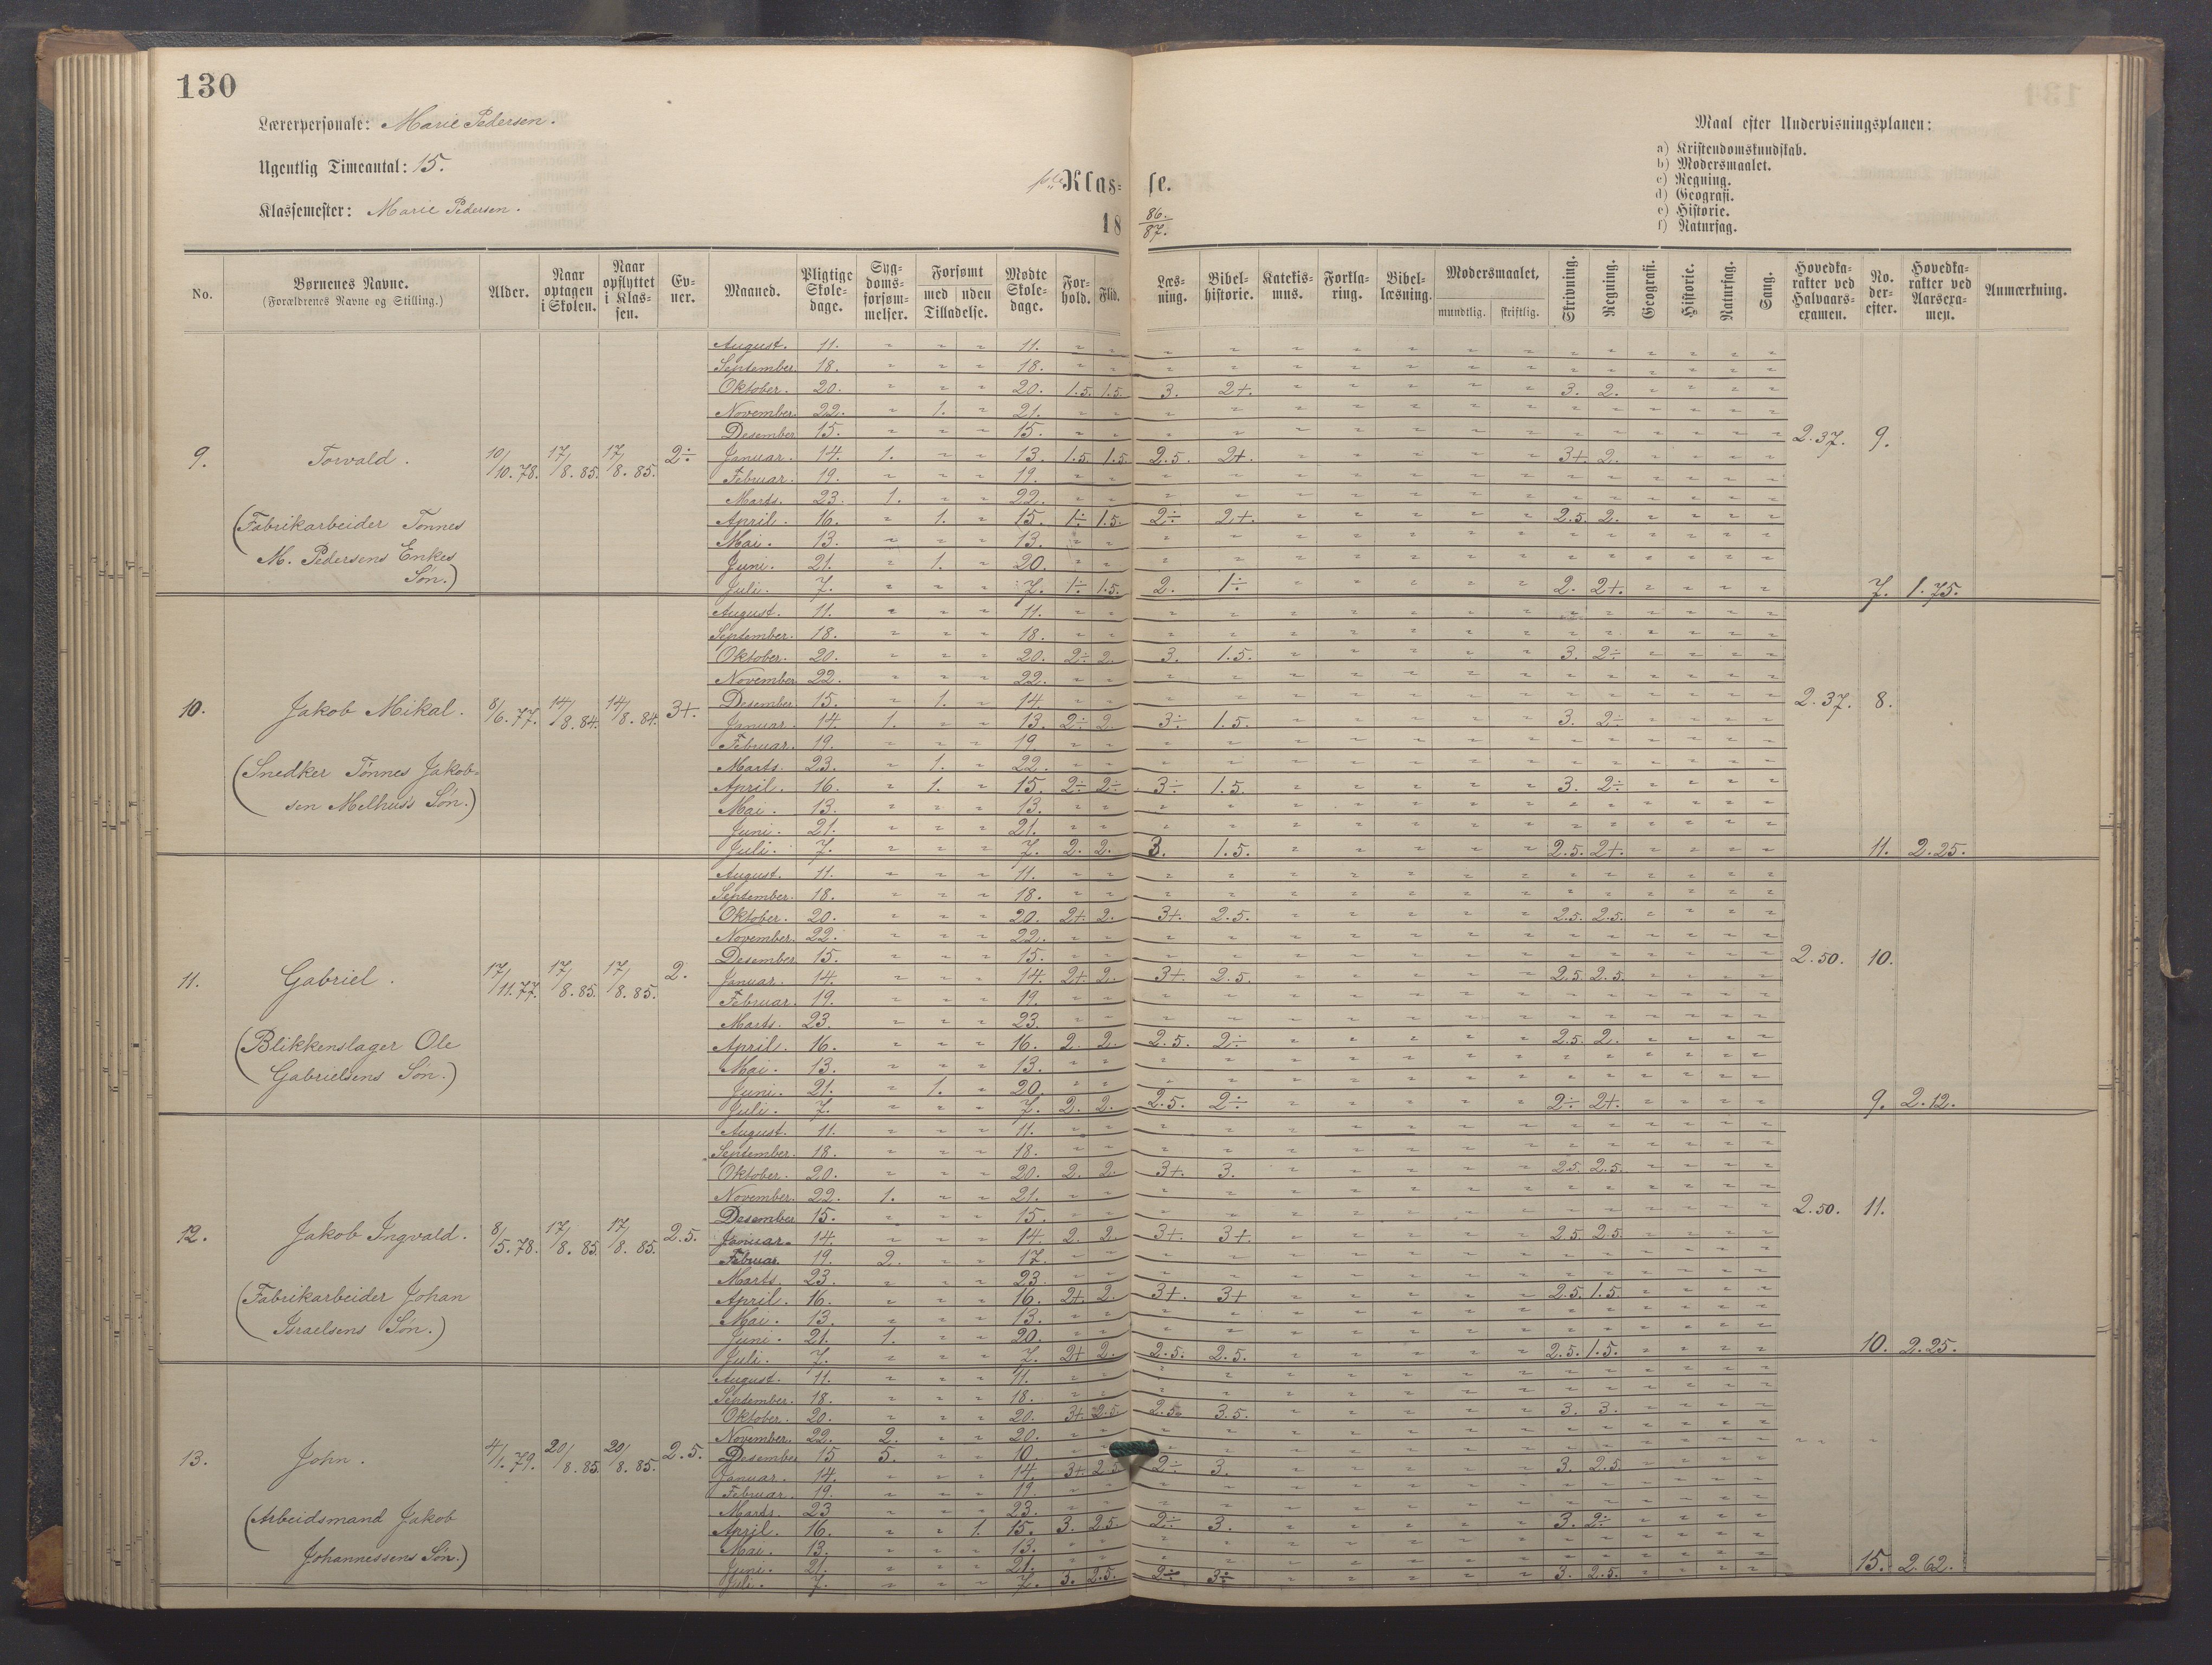 130
Lærerpersonale: Marie Pedersen.
Ugentlig Timeantal: 15.
Klassemester: Marie Pedersen.
1ste Klas- se.
18 86./87.
Maal efter Undervisningsplanen:
a) Kristendomskundskab.
b) Modersmaalet.
c) Regning.
d) Geografi.
e) Historie.
f) Naturfag.
No. Børnenes Navne. (Forældrenes Navne og Stilling.) Alder. Naar optagen i Skolen. Naar opflyttet i Klassen. Evner. Maaned. Pligtige Skoledage. Sygdomsforsømmelser. Forsømt med uden Tilladelse. Mødte Skoledage. Forhold. Flid. Læsning. Bibelhistorie. Katekismus. Forklaring. Bibellæsning. Modersmaalet, mundtlig. skriftlig. Skrivning. Regning. Geografi. Historie. Naturfag. Sang. Hovedkarakter ved Halvaarsexamen. No. derefter. Hovedkarakter ved Aarsexamen. Anmærkning.
9. Torvald. 10/10.78. 17/8.85. 17/8.85. 2÷
(Fabrikarbeider Tønnes
M. Pedersens Enkes
Søn.)
August. 11. " " " 11. " " " " " " " " " " " " " " "
September. 18. " " " 18. " " " " " " " " " " " " " " "
Oktober. 20. " " " 20. 1.5. 1.5. 3. 2+. " " " " " 3. 2. " " " "
November. 22. " 1. " 21. " " " " " " " " " " " " " " "
Desember 15. " " " 15. " " " " " " " " " " " " " " " 2.37. 9.
Januar. 14. 1. " " 13. 1.5. 1.5. 2.5. 2+. " " " " " 3+. 2. " " " "
Februar. 19. " " " 19. " " " " " " " " " " " " " " "
Marts. 23. 1. " " 22. " " " " " " " " " " " " " " "
April. 16. " 1. " 15. 1÷ 1.5. 2÷ 2+. " " " " " 2.5. 2. " " " "
Mai. 13. " " " 13. " " " " " " " " " " " " " " "
Juni. 21. " 1. " 20. " " " " " " " " " " " " " " "
Juli. 7. " " " 7. 1÷ 1.5. 2. 1÷ " " " " " 2. 2+. " " " " 7. 1.75.
10. Jakob Mikal. 8/6.77. 14/8.84. 14/8.84. 3+.
(Snedker Tønnes Jakob-
sen Melhus's Søn.)
August. 11. " " " 11. " " " " " " " " " " " " " " "
September. 18. " " " 18. " " " " " " " " " " " " " " "
Oktober. 20. " " " 20. 2÷ 2. 3. 1.5. " " " " " 3. 2÷ " " " "
November 22. " " " 22. " " " " " " " " " " " " " " "
Desember. 15. " 1. " 14. " " " " " " " " " " " " " " " 2.37. 8.
Januar. 14. 1. " " 13. 2÷ 2. 3÷ 1.5. " " " " " 3. 2÷ " " " "
Februar. 19. " " " 19. " " " " " " " " " " " " " " "
Marts. 23. " 1. " 22. " " " " " " " " " " " " " " "
April. 16. " 1. " 15. 2÷ 2÷ 3÷ 1.5. " " " " " 3. 2÷ " " " "
Mai. 13. " " " 13. " " " " " " " " " " " " " " "
Juni. 21. " " " 21. " " " " " " " " " " " " " " "
Juli. 7. " " " 7. 2. 2. 3. 1.5. " " " " " 2.5. 2+. " " " " 11. 2.25.
11. Gabriel. 17/11.77. 17/8.85. 17/8.85. 2.
(Blikkenslager Ole
Gabrielsens Søn.)
August. 11. " " " 11. " " " " " " " " " " " " " " "
September. 18. " " " 18. " " " " " " " " " " " " " " "
Oktober. 20. " " " 20. 2+. 2. 3+. 2.5. " " " " " 2.5. 2.5. " " " "
November. 22. " " " 22. " " " " " " " " " " " " " " "
Desember 15. " " " 15. " " " " " " " " " " " " " " " 2.50. 10.
Januar. 14. " " " 14. 2+. 2. 3+. 2.5. " " " " " 2.5. 2.5. " " " "
Februar. 19. " " " 19. " " " " " " " " " " " " " " "
Marts. 23. " " " 23. " " " " " " " " " " " " " " "
April. 16. " " " 16. 2. 2. 2.5. 2÷ " " " " " 2.5. 2. " " " "
Mai. 13. " " " 13. " " " " " " " " " " " " " " "
Juni. 21. " 1. " 20. " " " " " " " " " " " " " " "
Juli. 7. " " " 7. 2. 2. 2.5. 2÷ " " " " " 2÷ 2+. " " " " 9. 2.12.
12. Jakob Ingvald. 8/5.78. 17/8.85. 17/8.85. 2.5.
(Fabrikarbeider Johan
Israelsens Søn.)
August. 11. " " " 11. " " " " " " " " " " " " " " "
September. 18. " " " 18. " " " " " " " " " " " " " " "
Oktober. 20. " " " 20. 2. 2. 3+. 3. " " " " " 2.5. 2.5. " " " "
November. 22. 1. " " 21. " " " " " " " " " " " " " " "
Desember 15. " " " 15. " " " " " " " " " " " " " " " 2.50. 11.
Januar. 14. " " " 14. 2. 2. 3+. 3+. " " " " " 2.5. 2.5. " " " "
Februar. 19. 2. " " 17. " " " " " " " " " " " " " " "
Marts. 23. " " " 23. " " " " " " " " " " " " " " "
April. 16. " " " 16. 2+. 2. 3+. 3+ " " " " " 2.5. 1.5. " " " "
Mai. 13. " " " 13. " " " " " " " " " " " " " " "
Juni. 21. 1. " " 20. " " " " " " " " " " " " " " "
Juli. 7. " " " 7. 2+ 2. 2.5. 2.5. " " " " " 2.5. 1.5. " " " " 10. 2.25.
13. John. 4/1.79. 20/8.85. 20/8.85. 2.5.
(Arbeidsmand Jakob
Johannessens Søn.)
August. 11. " " " 11. " " " " " " " " " " " " " " "
September. 18. " " " 18. " " " " " " " " " " " " " " "
Oktober. 20. " " " 20. 3+. 2.5. 2.5. 3.5. " " " " " 3. 3. " " " "
November. 22. 2. " " 20. " " " " " " " " " " " " " " "
Desember 15 5. " " 10. " " " " " " " " " " " " " " " " " "
Januar. 14. " " " 14. 3+. 2.5 2÷ 3. " " " " " 3. 2.5. " " " "
Februar. 19. " " " 19. " " " " " " " " " " " " " " "
Marts. 23 " " " 23. " " " " " " " " " " " " " " "
April. 16. " " 1. 15. 3. 2.5. 2÷ 3. " " " " " 3. 2÷ " " " "
Mai. 13. " " " 13. " " " " " " " " " " " " " " "
Juni. 21. " " " 21. " " " " " " " " " " " " " " "
Juli. 7. " " " 7. 3. 2.5. 2÷ 3÷ " " " " " 3. 2.5. " " " " 15. 2.62.